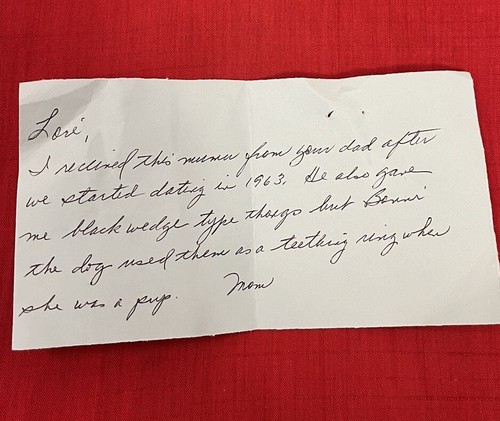 Lori,
I recieved this mumu from your dad after
we started dating in 1963. He also gave
me black wedge type thongs but Bonni
the dog used them as a teething ring when
she was a pup. Mom